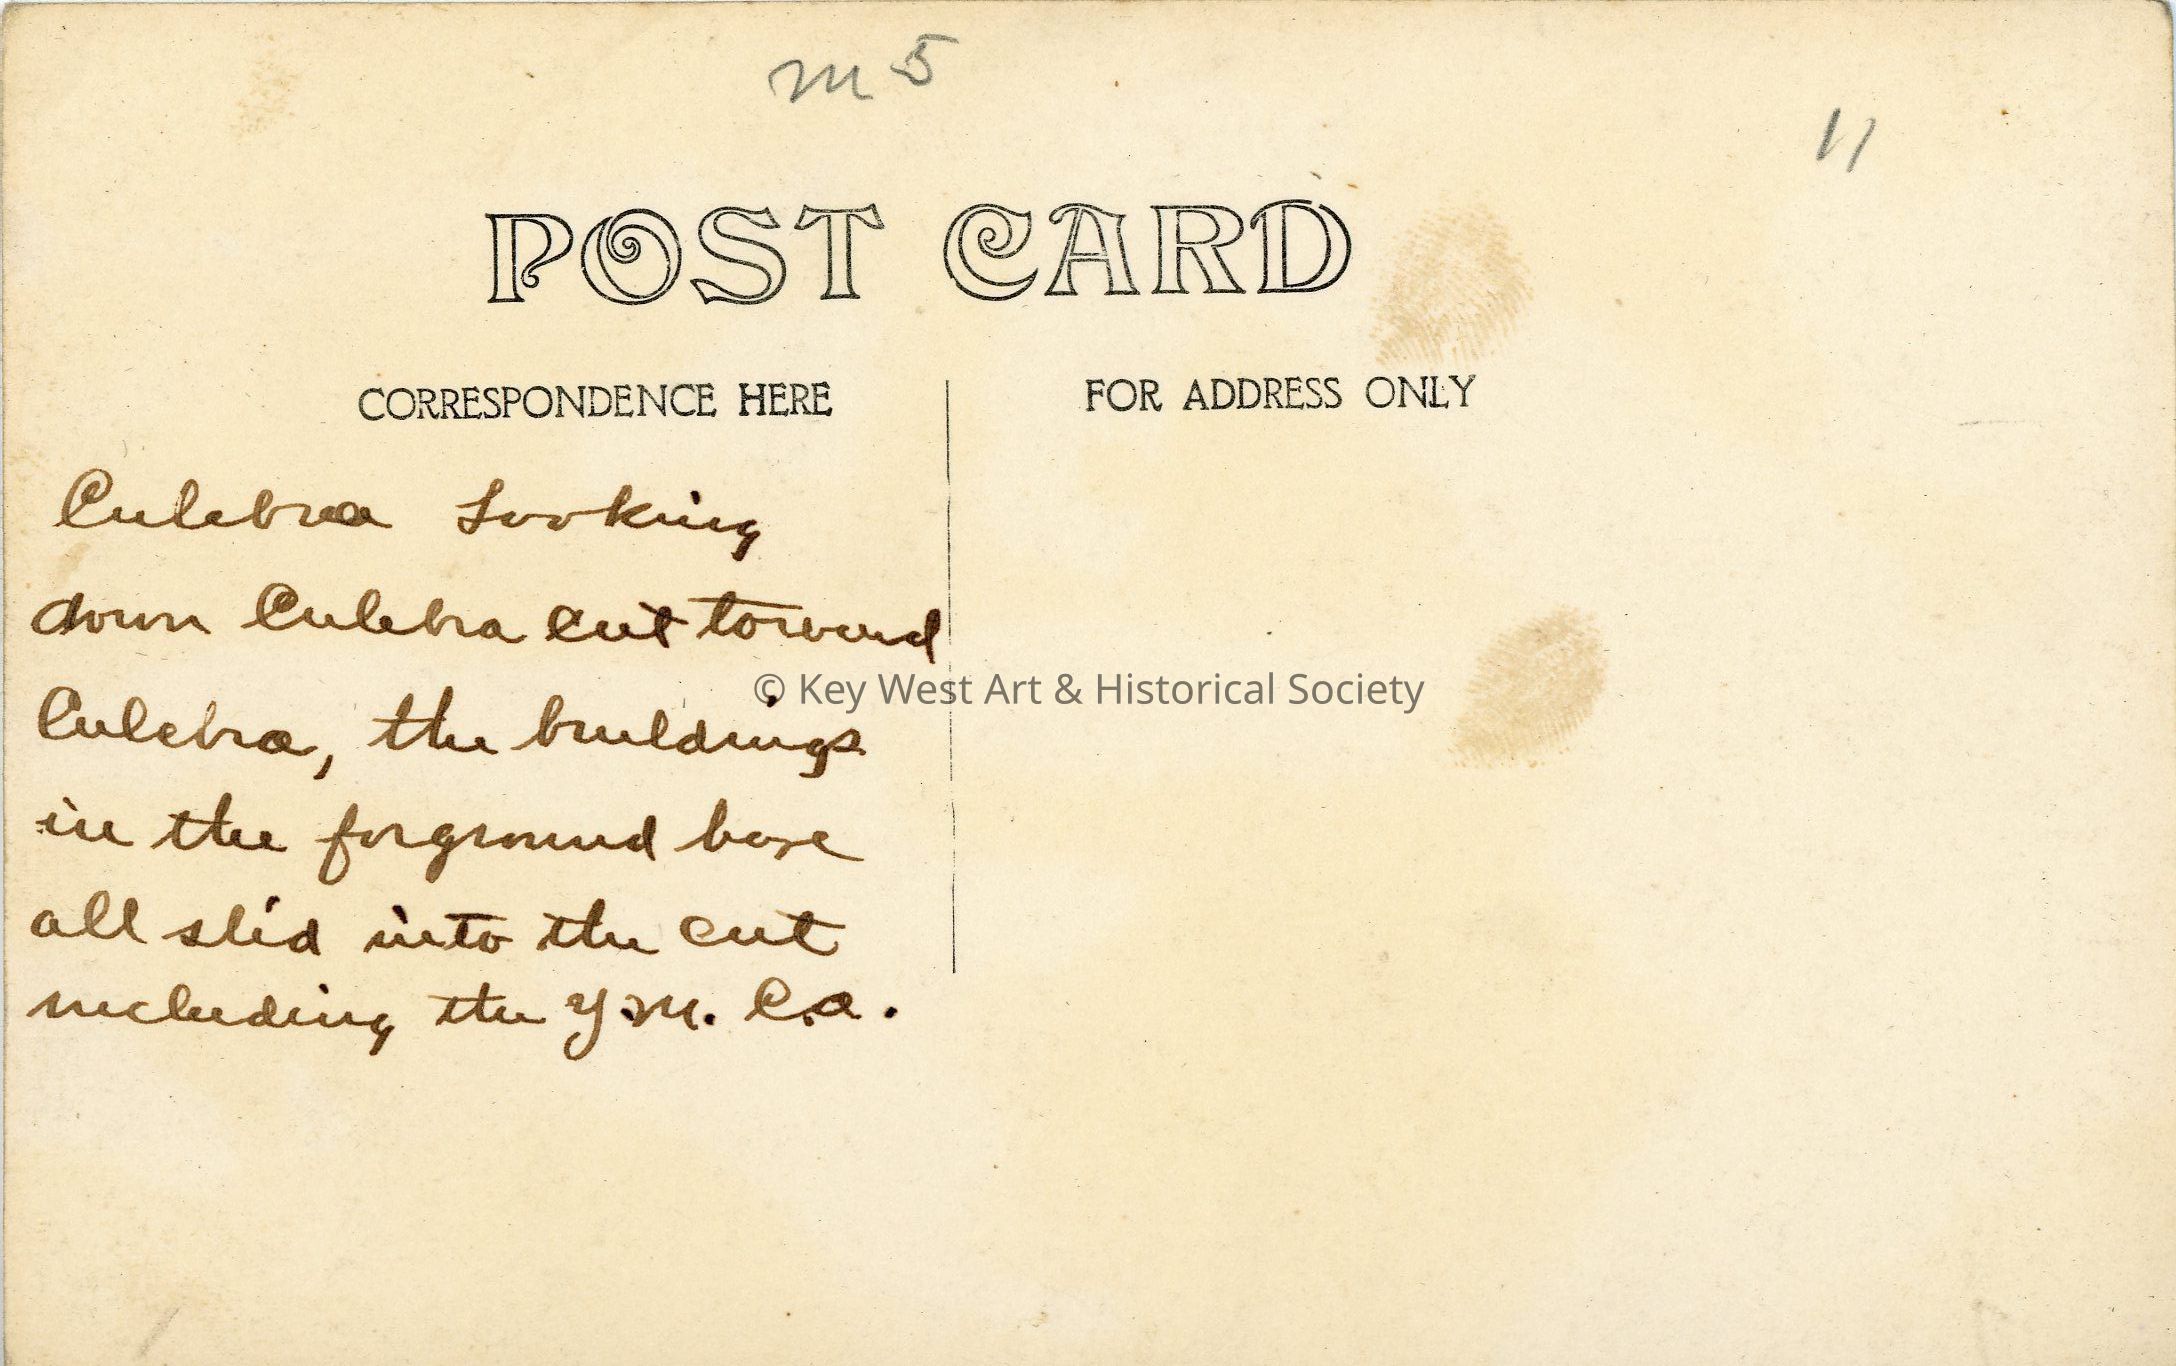 m 5
11
POST CARD
CORRESPONDENCE HERE
FOR ADDRESS ONLY
Culebra Looking
down Culebra Cut toward
Culebra, the buildings
in the forground have
all slid into the cut
including the Y.M.C.A.
© Key West Art & Historical Society